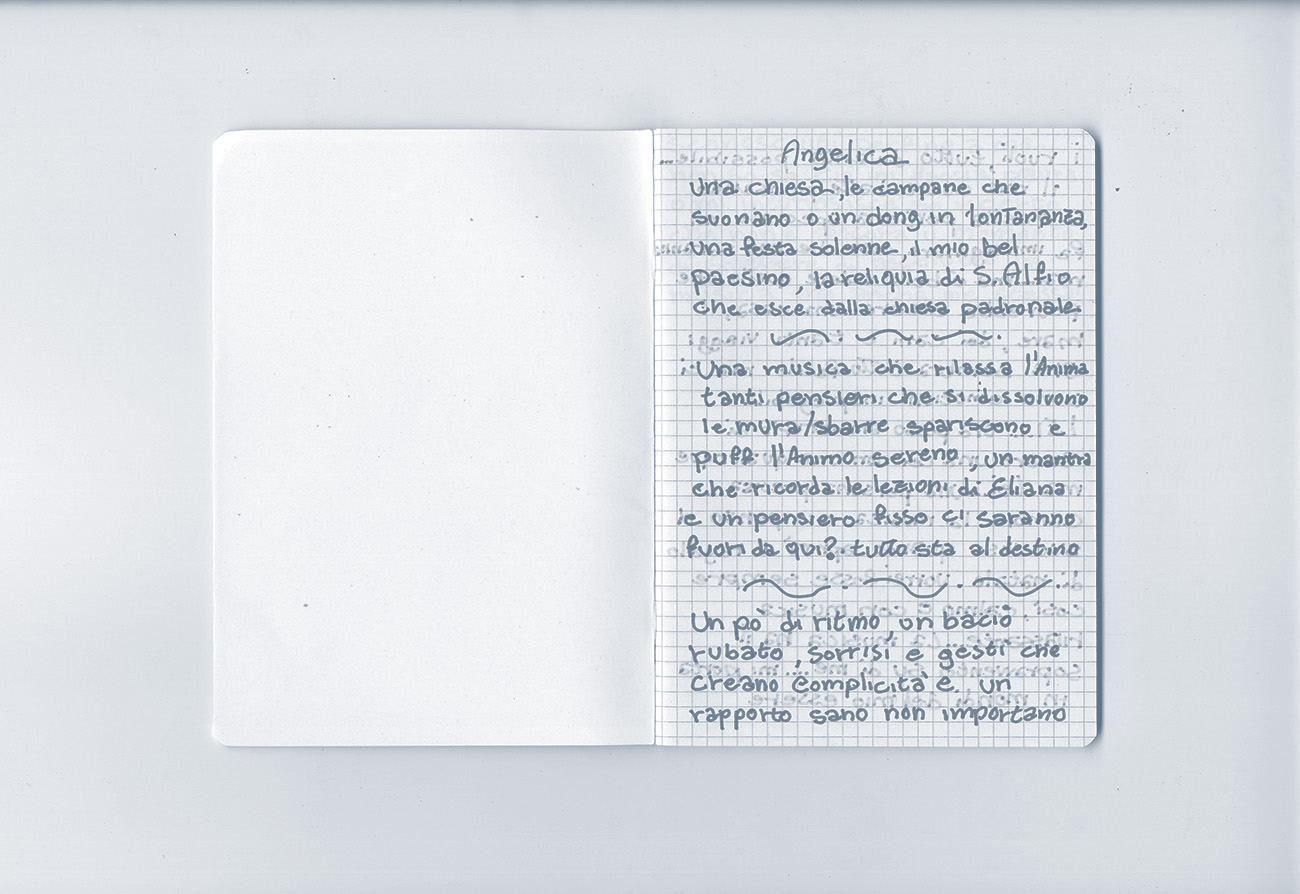 Angelica
Una chiesa, le campane che
suonano o un dong in lontananza,
una festa solenne, il mio bel
paesino, la reliquia di S. Alfio
che esce dalla chiesa padronale
Una musica che rilassa l'Anima
tanti pensieri che si dissolvono
le mura/sbarre spariscono e
puff l'Animo sereno, un mantra
che ricorda le lezioni di Eliana
e un pensiero fisso ci saranno
fuori da qui? tutto sta al destino
Un po' di ritmo, un bacio
rubato, sorrisi e gesti che
creano complicità e un
rapporto sano non importano